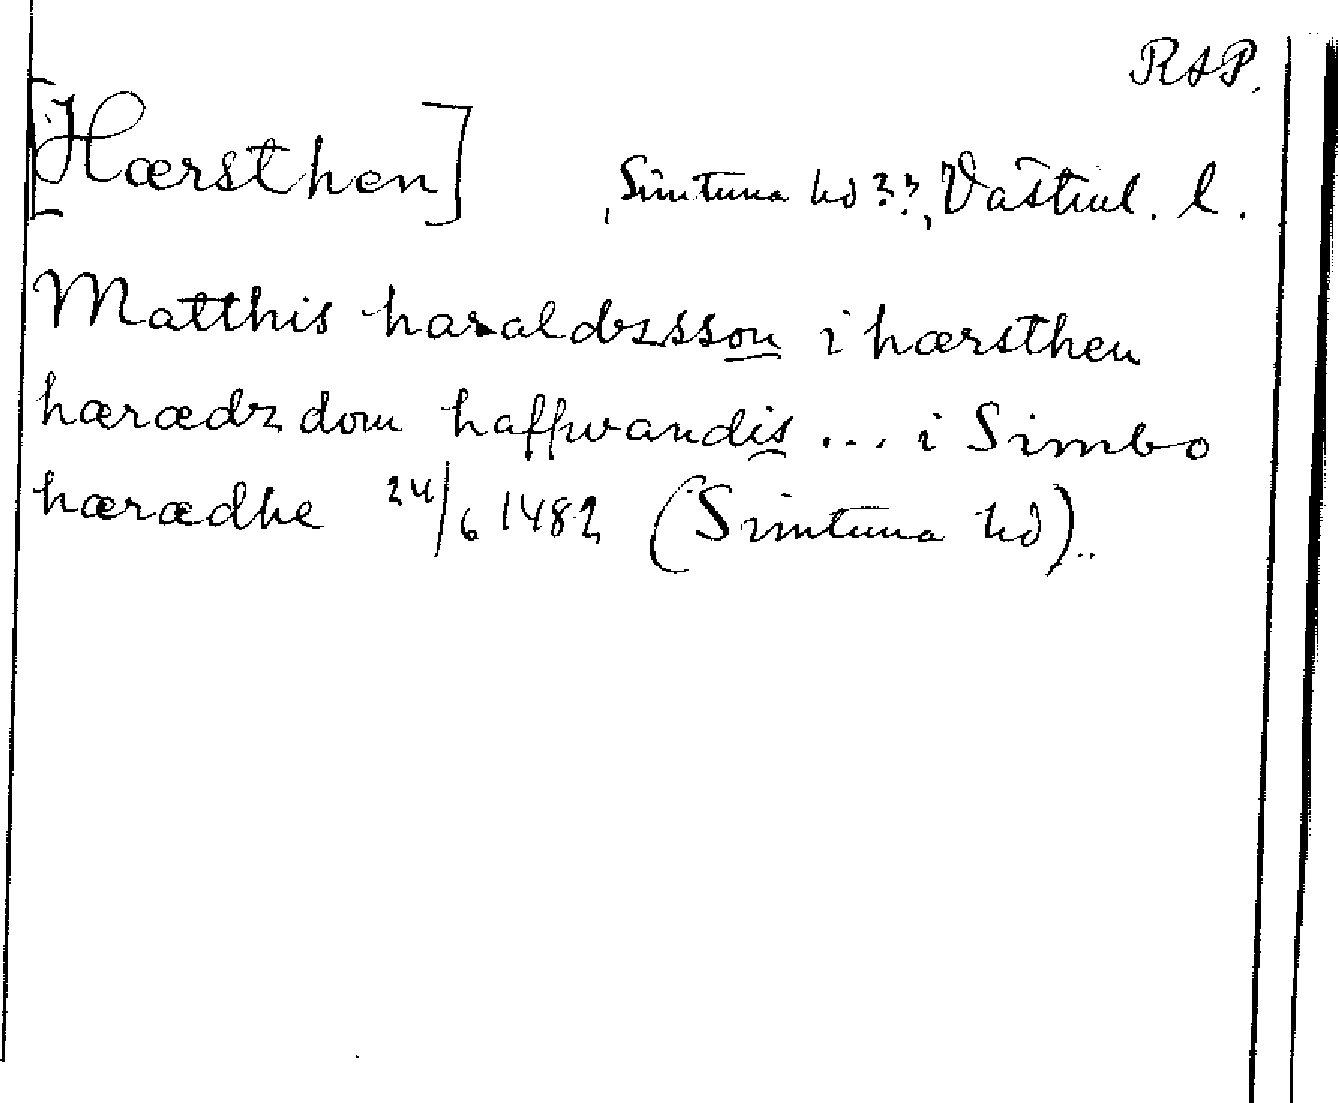 RAP.
[Hærsthen] , Simtuna hd ??, Västml. l.
Matthis haraldzsson i hærsthen
hærædz dom haffwandis ... i Simbo
hærædhe 24/6 1482 (Simtuna hd)..